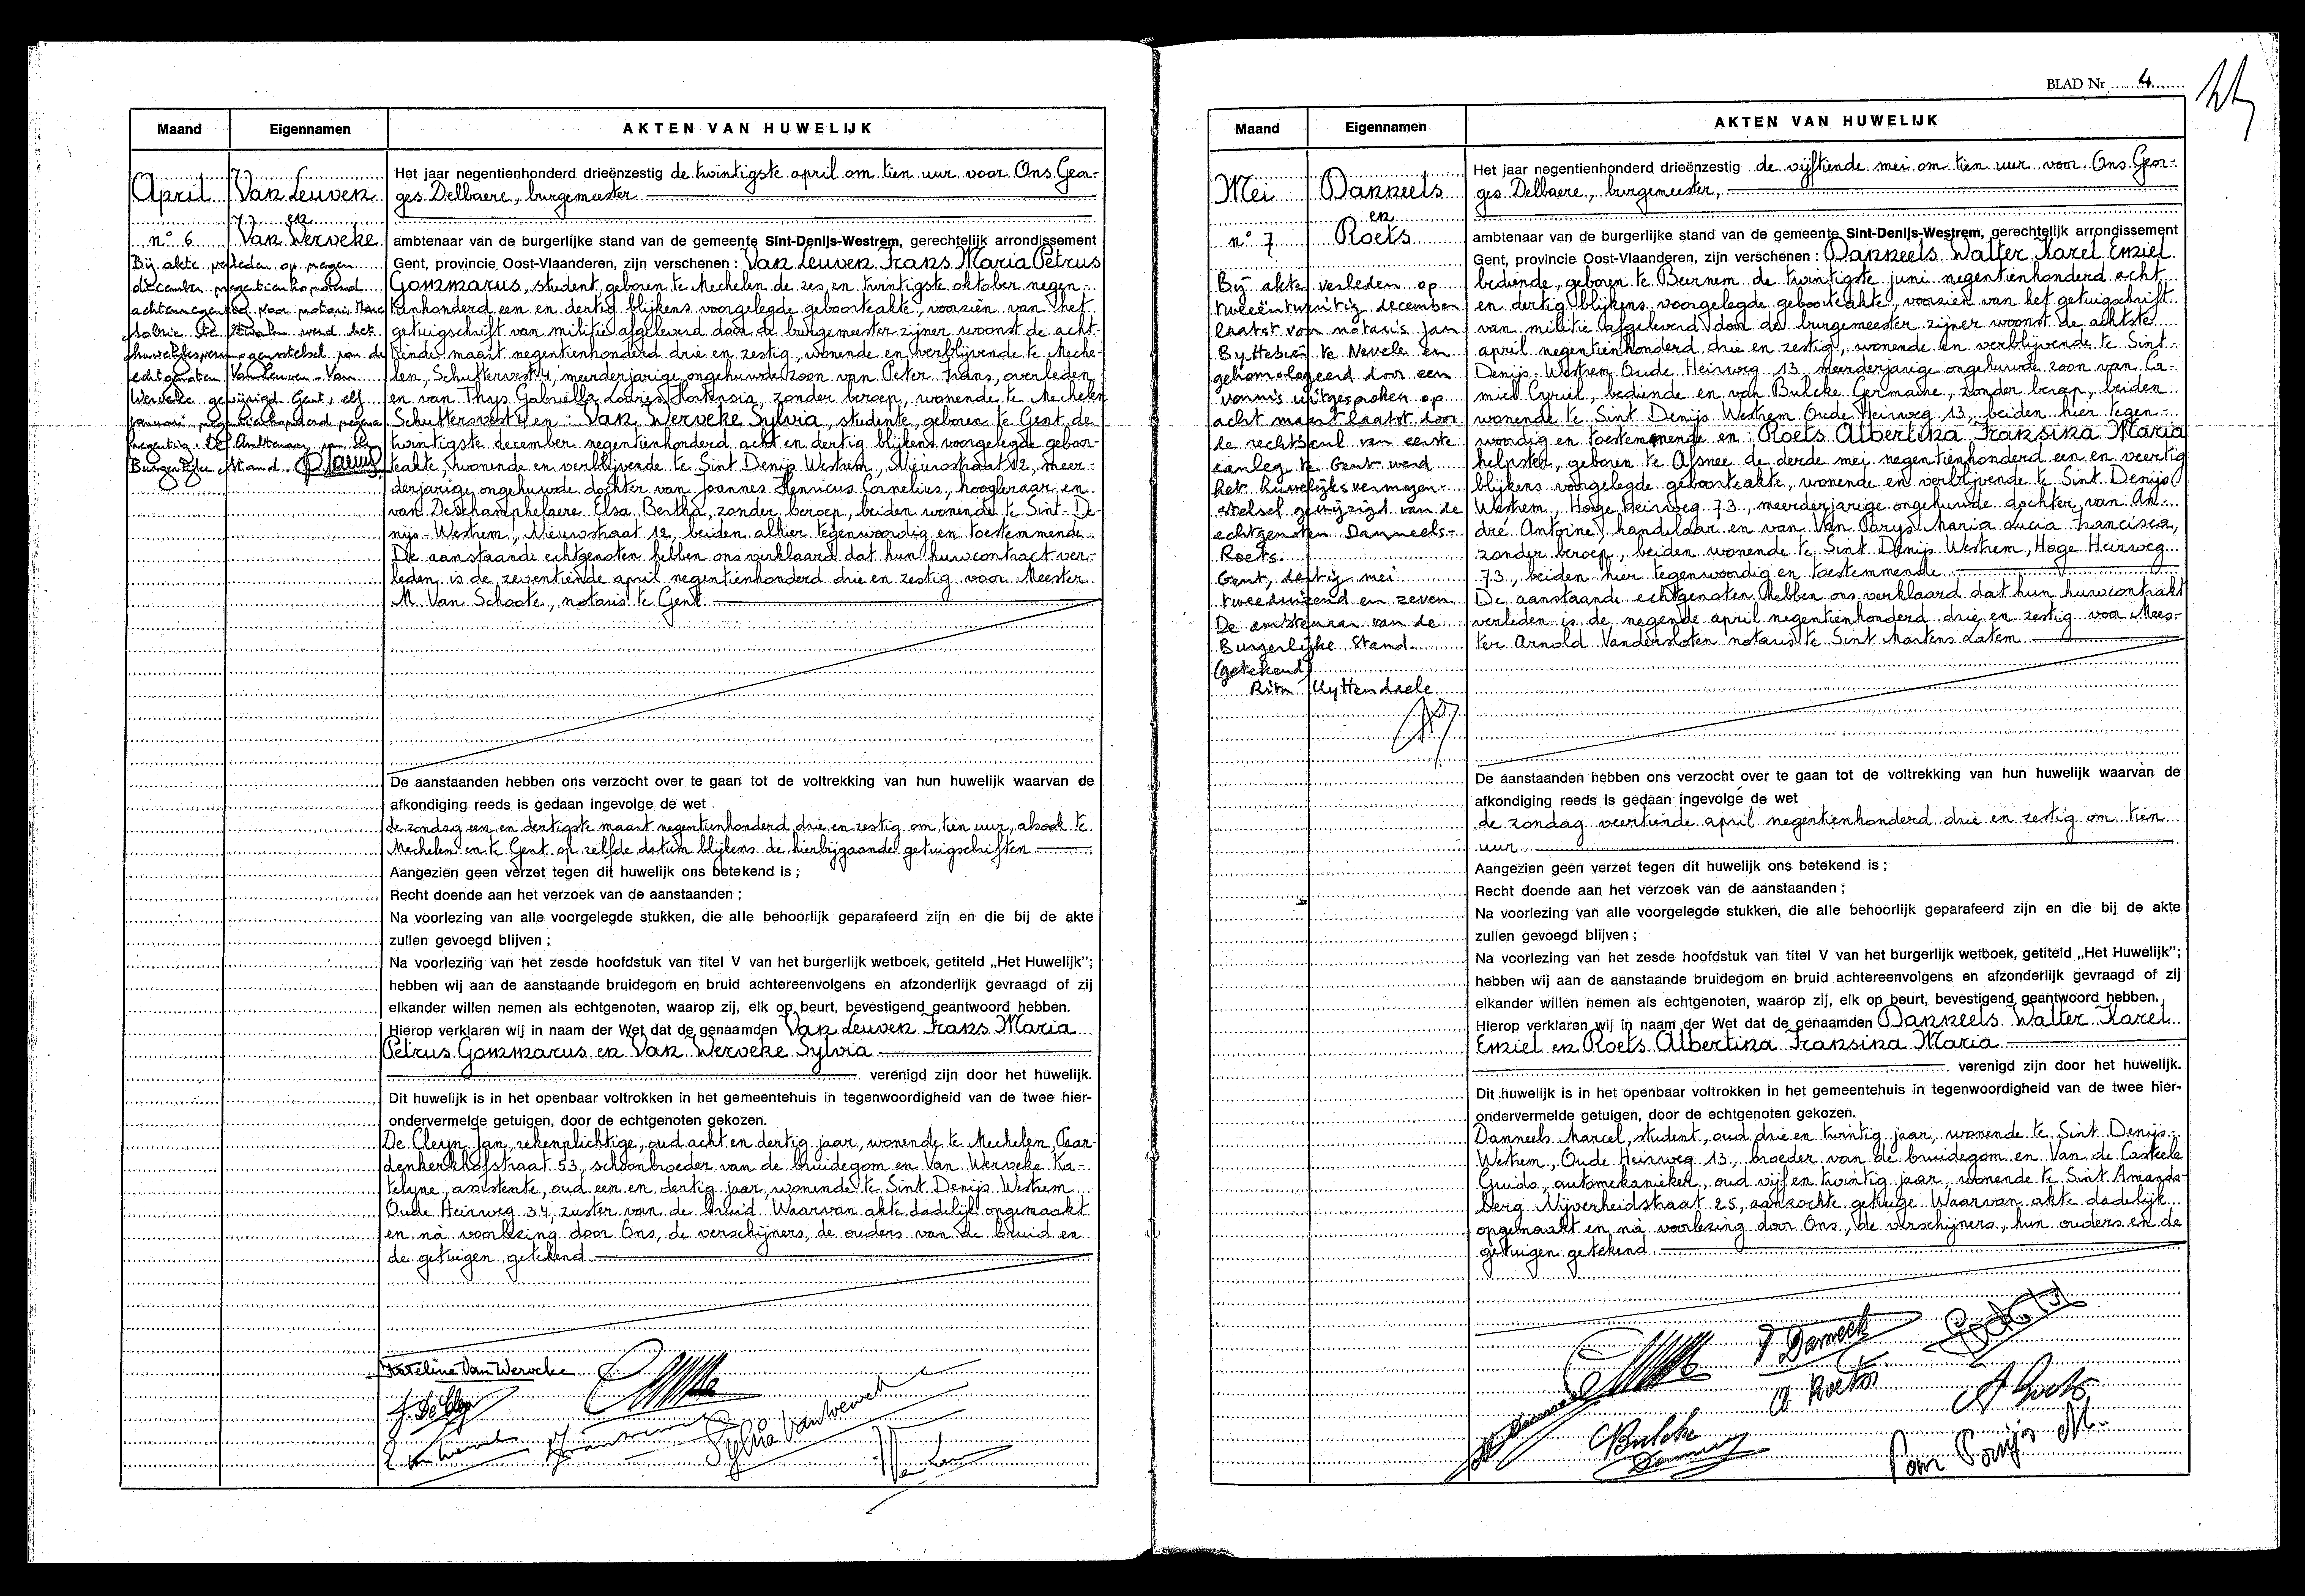 Maand
Eigennamen
AKTEN VAN HUWELIJK
April
Van Leuven
en
Van Werveke
n° 6
Bij akte verleden op negen
december negentienhonderd
achtennegentig voor notaris Marc
werd het
huwelijksvermogensstelsel van de
echtgenoten Van Leuven - Van
Werveke gewijzigd Gent, elf
januari negentienhonderd negenen
negentig. De Ambtenaar van de
Burgerlijke Stand.
Het jaar negentienhonderd drieënzestig de twintigste april om tien uur voor Ons Geor-
ges Delbaere, burgemeester
ambtenaar van de burgerlijke stand van de gemeente Sint-Denijs-Westrem, gerechtelijk arrondissement
Gent, provincie Oost-Vlaanderen, zijn verschenen : Van Leuven Frans Maria Petrus
Gommarus, student, geboren te Mechelen de zes en twintigste oktober negen-
tienhonderd een en dertig blijkens voorgelegde geboorteakte, voorzien van het
getuigschrift van militie afgeleverd door de burgemeester zijner woonst de acht-
tiende maart negentienhonderd drie en zestig, wonende en verblijvende te Meche-
len, Schuttersvest 4, meerderjarige ongehuwde zoon van Peter Frans, overleden
en van Thys Gabriella Louisa Hortensia, zonder beroep, wonende te Mechelen
Schuttersvest 4 en : Van Werveke Sylvia, studente, geboren te Gent de
twintigste december negentienhonderd acht en dertig blijkens voorgelegde geboor-
teakte, wonende en verblijvende te Sint Denijs Westrem, Nieuwstraat 12, meer-
derjarige ongehuwde dochter van Joannes Henricus Cornelius, hoogleraar en
van Deschamphelaere Elsa Bertha, zonder beroep, beiden wonende te Sint-De-
nijs-Westrem, Nieuwstraat 12, beiden alhier tegenwoordig en toestemmende
De aanstaande echtgenoten hebben ons verklaard dat hun huwcontract ver-
leden is de zeventiende april negentienhonderd drie en zestig voor Meester
M. Van Schoote, notaris te Gent
De aanstaanden hebben ons verzocht over te gaan tot de voltrekking van hun huwelijk waarvan de
afkondiging reeds is gedaan ingevolge de wet
de zondag een en dertigste maart negentienhonderd drie en zestig om tien uur, alsook te
Mechelen en te Gent op zelfde datum blijkens de hierbijgaande getuigschriften
Aangezien geen verzet tegen dit huwelijk ons betekend is ;
Recht doende aan het verzoek van de aanstaanden ;
Na voorlezing van alle voorgelegde stukken, die alle behoorlijk geparafeerd zijn en die bij de akte
zullen gevoegd blijven ;
Na voorlezing van het zesde hoofdstuk van titel V van het burgerlijk wetboek, getiteld „Het Huwelijk";
hebben wij aan de aanstaande bruidegom en bruid achtereenvolgens en afzonderlijk gevraagd of zij
elkander willen nemen als echtgenoten, waarop zij, elk op beurt, bevestigend geantwoord hebben.
Hierop verklaren wij in naam der Wet dat de genaamden Van Leuven Frans Maria
Petrus Gommarus en Van Werveke Sylvia
verenigd zijn door het huwelijk.
Dit huwelijk is in het openbaar voltrokken in het gemeentehuis in tegenwoordigheid van de twee hier-
ondervermelde getuigen, door de echtgenoten gekozen.
De Cleyn Jan, rekenplichtige, oud acht en dertig jaar, wonende te Mechelen, Paar-
denkerkhofstraat 53, schoonbroeder van de bruidegom en Van Werveke Ka-
telyne, assistente, oud een en dertig jaar, wonende te Sint Denijs Westrem
Oude Heirweg 34, zuster van de bruid. Waarvan akte dadelijk opgemaakt
en na voorlezing door Ons, de verschijners, de ouders van de bruid en
de getuigen getekend.
Kateline Van Werveke
J. De Cleyn
Sylvia Van Werveke
BLAD Nr 4
Maand
Eigennamen
AKTEN VAN HUWELIJK
Mei
Danneels
en
Roets
n° 7
Bij akte verleden op
tweeëntwintig december
laatst voor notaris Jan
Byttebier te Nevele en
gehomologeerd door een
vonnis uitgesproken op
acht maart laatst door
de rechtbank van eerste
aanleg te Gent werd
het huwelijksvermogen-
stelsel gewijzigd van de
echtgenoten Danneels-
Roets.
Gent, dertig mei
tweeduizend en zeven
De ambtenaar van de
Burgerlijke Stand.
(getekend)
Rita Uyttendaele
Het jaar negentienhonderd drieënzestig de vijftiende mei om tien uur voor Ons Geor-
ges Delbaere, burgemeester,
ambtenaar van de burgerlijke stand van de gemeente Sint-Denijs-Westrem, gerechtelijk arrondissement
Gent, provincie Oost-Vlaanderen, zijn verschenen : Danneels Walter Karel Emiel
bediende, geboren te Beernem de twintigste juni negentienhonderd acht
en dertig blijkens voorgelegde geboorteakte, voorzien van het getuigschrift
van militie afgeleverd door de burgemeester zijner woonst de achtste
april negentienhonderd drie en zestig, wonende en verblijvende te Sint
Denijs-Westrem Oude Heirweg 13 meerderjarige ongehuwde zoon van Ca-
miel Cyriel, bediende en van Bulcke Germaine, zonder beroep, beiden
wonende te Sint Denijs Westrem Oude Heirweg 13, beiden hier tegen-
woordig en toestemmende en : Roets Albertina Fransina Maria
helpster, geboren te Afsnee de derde mei negentienhonderd een en veertig
blijkens voorgelegde geboorteakte, wonende en verblijvende te Sint Denijs
Westrem, Hoge Heirweg 73, meerderjarige ongehuwde dochter van An-
dré Antoine, handelaar en van Van Parys Maria Lucia Francisca,
zonder beroep, beiden wonende te Sint Denijs Westrem, Hoge Heirweg
73, beiden hier tegenwoordig en toestemmende
De aanstaande echtgenoten hebben ons verklaard dat hun huwcontrakt
verleden is de negende april negentienhonderd drie en zestig voor Mees-
ter Arnold Vandersloten notaris te Sint Martens Latem
De aanstaanden hebben ons verzocht over te gaan tot de voltrekking van hun huwelijk waarvan de
afkondiging reeds is gedaan ingevolge de wet
de zondag veertiende april negentienhonderd drie en zestig om tien
uur
Aangezien geen verzet tegen dit huwelijk ons betekend is ;
Recht doende aan het verzoek van de aanstaanden ;
Na voorlezing van alle voorgelegde stukken, die alle behoorlijk geparafeerd zijn en die bij de akte
zullen gevoegd blijven ;
Na voorlezing van het zesde hoofdstuk van titel V van het burgerlijk wetboek, getiteld „Het Huwelijk";
hebben wij aan de aanstaande bruidegom en bruid achtereenvolgens en afzonderlijk gevraagd of zij
elkander willen nemen als echtgenoten, waarop zij, elk op beurt, bevestigend geantwoord hebben.
Hierop verklaren wij in naam der Wet dat de genaamden Danneels Walter Karel
Emiel en Roets Albertina Fransina Maria
verenigd zijn door het huwelijk.
Dit huwelijk is in het openbaar voltrokken in het gemeentehuis in tegenwoordigheid van de twee hier-
ondervermelde getuigen, door de echtgenoten gekozen.
Danneels Marcel, student, oud drie en twintig jaar, wonende te Sint Denijs-
Westrem, Oude Heirweg 13, broeder van de bruidegom en Van de Casteele
Guido, automekanieker, oud vijf en twintig jaar, wonende te Sint Amands-
berg Nijverheidstraat 25, aanzochte getuige. Waarvan akte dadelijk
opgemaakt en na voorlezing door Ons, de verschijners, hun ouders en de
getuigen getekend.
A. Roets
Bulcke
Van Parijs M.